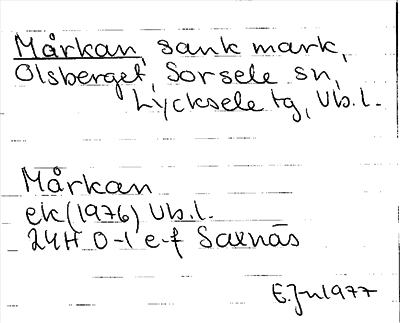 Mårkan, sank mark,
Olsberget, Sorsele sn,
Lycksele tg, Vb.l.
Mårkan
ek (1976) Vb.l.
24H 0-1 e-f Saxnäs
E.Jn 1977